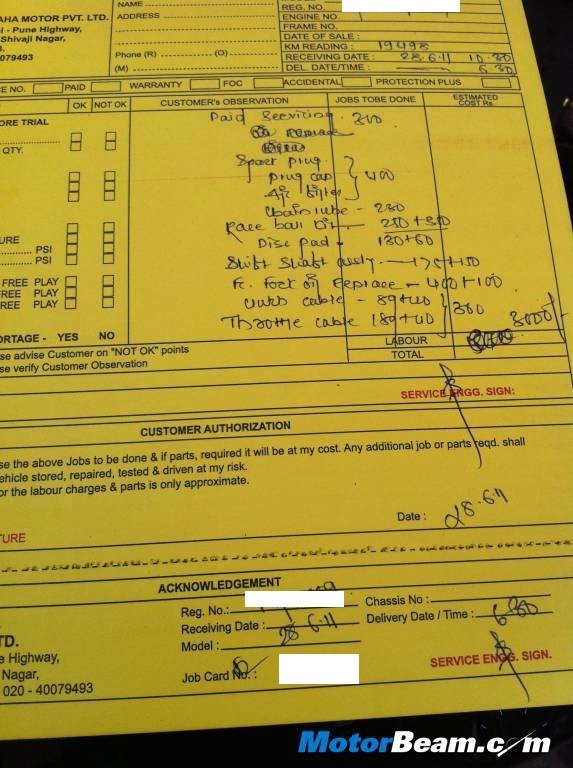 NAME
REG. NO.
AHA MOTOR PVT. LTD.
ADDRESS
ENGINE NO.
i - Pune Highway,
FRAME NO.
Shivaji Nagar,
DATE OF SALE :
KM READING : 19498
79493
Phone (R) (O)
RECEIVING DATE : 28.6.11 10.30
(M)
DEL. DATE/TIME : 6.30
CE NO. PAID WARRANTY FOC ACCIDENTAL PROTECTION PLUS
OK NOT OK CUSTOMER's OBSERVATION JOBS TOBE DONE ESTIMATED COST Rs.
ORE TRIAL
Paid Servicing 210
QTY.
Replace
Spart plug
plug cap } 400
Air filter
Chain lube - 230
Race ball kit - 250+350
URE
Disc pad - 130+60
PSI
PSI
Shift Shaft assly. - 175+150
FREE PLAY
Fr. Fork oil Replace - 400+100
REE PLAY
cable - 89+40 } 360
FREE PLAY
Throttle cable 189+40
3000/-
ORTAGE - YES NO
LABOUR
se advise Customer on "NOT OK" points
TOTAL
se verify Customer Observation
SERVICE ENGG. SIGN:
CUSTOMER AUTHORIZATION
se the above Jobs to be done & if parts, required it will be at my cost. Any additional job or parts reqd. shall
ehicle stored, repaired, tested & driven at my risk.
or the labour charges & parts is only approximate.
TURE
Date : 28.6.11
ACKNOWLEDGEMENT
Reg. No.:
Chassis No :
Receiving Date : 28 6.11
Delivery Date / Time : 6.30
TD.
Model :
e Highway,
SERVICE ENGG. SIGN.
Nagar,
Job Card No. :
020 - 40079493
MotorBeam.com